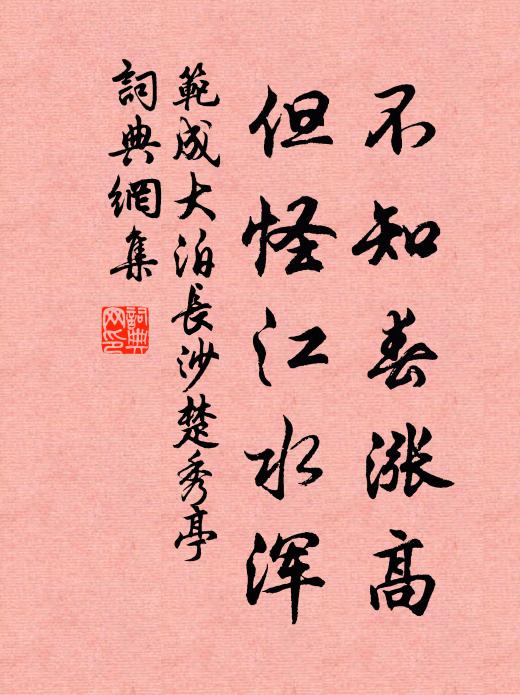 不知春漲高
但怪江水渾
範成大泊長沙楚秀亭
詞典網集
詞典
网印